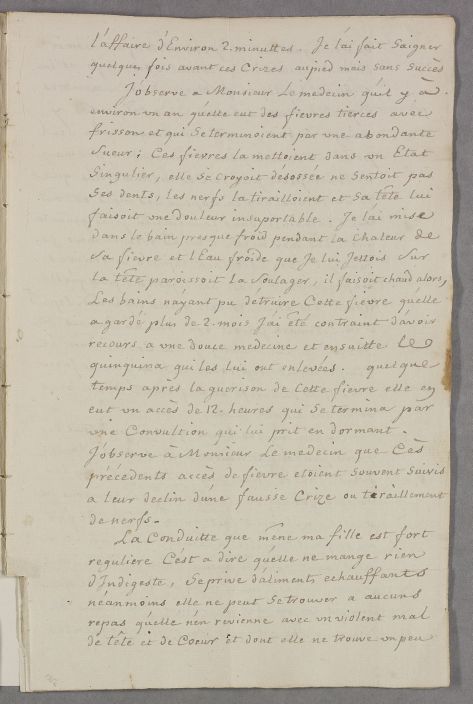 l'affaire d'Environ 2. minuttes. Je lai fait Saigner
quelque fois avant ces Crizes aupied mais Sans Succès
J'observe a Monsieur Le medecin quil y a
environ un an quelle eut des fievres tierces avec
frissons et qui Se terminoient par une abondante
Sueur; Cés fievres la mettoient dans un Etat
Singulier, elle Se croyoit desossée ne Sentoit pas
Ses dents, les nerfs la tirailloient et Sa tête lui
faisoit une douleur insuportable. Je lai mise
dans le bain presque froid pendant la Chaleur de
Sa fievre et l'Eau froide que Je lui Jestois Sur
la tête paroissoit la Soulager, il faisoit chaud alors,
Les bains nayant pu detruire Cette fiévre quelle
a gardé plus de 2. mois J'ai été contraint d'avoir
recours a une douce medecine et ensuitte Le
quinquina qui les lui ont enlevées. quelque
temps après la guerison de Cette fievre elle en
eut un accès de 12. heures qui Se termina par
une Convultion qui lui prit en dormant.
J'observe à Monsieur Le medecin que Cès
précédents accès de fievre etoient Souvent Suivis
a leur declin d'une fausse Crize ou tiraillement
de nerfs.
La Conduitte que mêne ma fille est fort
reguliere C'est a dire quelle ne mange rien
d'Indigeste, Se prive d'aliments echauffants
néanmoins elle ne peut Se trouver a aucuns
repas quelle n'en revienne avec un violent mal
de tête et de Coeur et dont elle ne trouve un peu